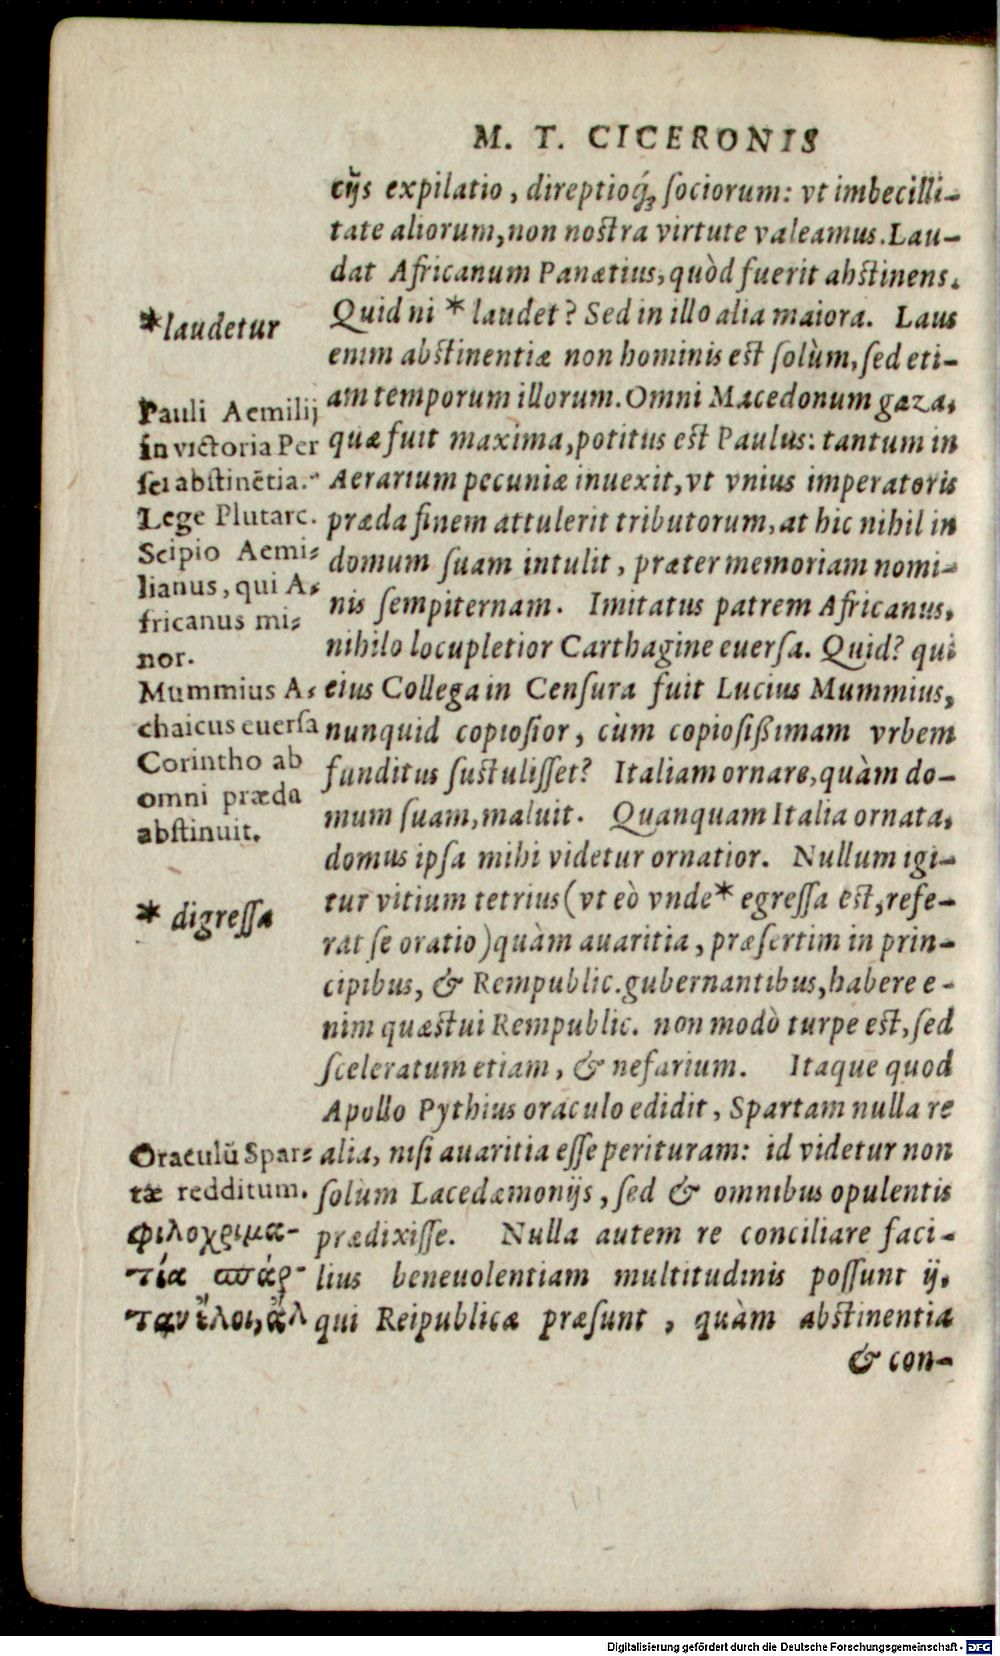 M. T. CICERONIS
cijs expilatio, direptioq́; sociorum: vt imbecilli-
tate aliorum, non nostra virtute valeamus. Lau-
dat Africanum Panætius, quòd fuerit abstinens.
Quid ni * laudet? Sed in illo alia maiora. Laus
enim abstinentiæ non hominis est solùm, sed eti-
am temporum illorum. Omni Macedonum gaza,
quæ fuit maxima, potitus est Paulus: tantum in
Aerarium pecuniæ inuexit, vt vnius imperatoris
præda finem attulerit tributorum, at hic nihil in
domum suam intulit, præter memoriam nomi-
nis sempiternam. Imitatus patrem Africanus,
nihilo locupletior Carthagine euersa. Quid? qui
eius Collega in Censura fuit Lucius Mummius,
nunquid copiosior, cùm copiosißimam vrbem
funditus sustulisset? Italiam ornare, quàm do-
mum suam, maluit. Quanquam Italia ornata,
domus ipsa mihi videtur ornatior. Nullum igi-
tur vitium tetrius (vt eò vnde * egressa est, refe-
rat se oratio) quàm auaritia, præsertim in prin-
cipibus, & Rempublic. gubernantibus, habere e-
nim quæstui Rempublic. non modò turpe est, sed
sceleratum etiam, & nefarium. Itaque quod
Apollo Pythius oraculo edidit, Spartam nulla re
alia, nisi auaritia esse perituram: id videtur non
solum Lacedæmonijs, sed & omnibus opulentis
prædixisse. Nulla autem re conciliare faci-
lius beneuolentiam multitudinis possunt ij,
qui Reipublicæ præsunt, quàm abstinentia
& con-
*laudetur
Pauli Aemilij
in victoria Per
sei abstinētia.
Lege Plutarc.
Scipio Aemi-
lianus, qui A-
fricanus mi-
nor.
Mummius A-
chaicus euersa
Corintho ab
omni præda
abstinuit.
* digressa
Oraculū Spar-
tæ redditum.
φιλοχριμα-
τία σπάρ-
ταν ἕλοι, ἄλ
Digitalisierung gefördert durch die Deutsche Forschungsgemeinschaft - DFG